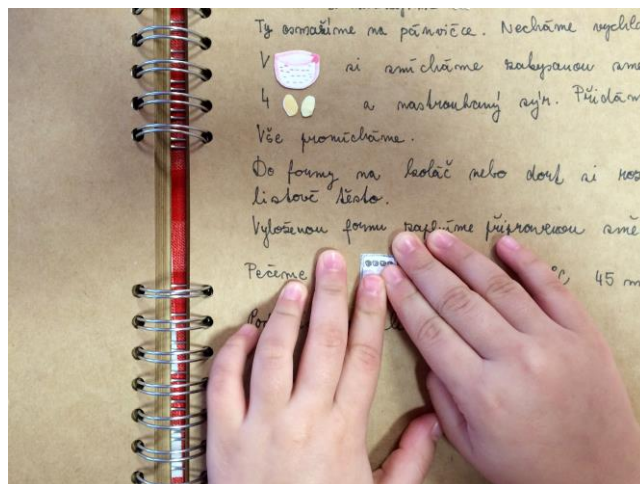 Ty osmažíme na pánvičce. Necháme vychla
V si smícháme zakysanou sme
4 a nastrouhaný sýr. Přidám
Vše promícháme.
Do formy na koláč nebo dort si roz
listové těsto.
Vyloženou formu zaplníme připravenou smě
Pečeme °C, 45 m